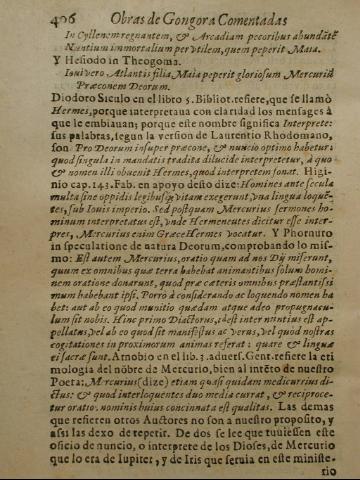 406 Obras de Gongora Comentadas
In Cyllenem regnantem, & Arcadiam pecoribus abundãtẽ
Nuntium immortalium per utilem, quem peperit Maia.
Y Hesiodo in Theogoma.
Ioui vero Atlantis filia Maia peperit gloriosum Mercuriũ
Præconem Deorum.
Diodoro Siculo en el libro 5. Bibliot. refiere, que se llamò
Hermes, porque interpretaua con claridad los mensages à
que le embiauan; porque este nombre significa Interpretes
sus palabras, segun la version de Laurentio Rhodomano,
son Pro Deorum insuper præcone, & nuncio optimo habetur:
quod singula in mandatis tradita dilucide interpretetur, à quo
& nomen illi obuenit Hermes, quod interpretem sonat. Higi-
nio cap. 143. Fab. en apoyo desto dize: Homines ante secula
multa sine oppidis legibusq; vitam exegerunt, vna lingua loquẽ-
tes, sub Iouis imperio. Sed postquam Mercurius sermones ho-
minum interpretatus est, vnde Hermeneutes dicitur esse inter-
pres, Mercurius enim Græce Hermes vocatur. Y Phornuto
in speculatione de natura Deorum, comprobando lo mis-
mo: Est autem Mercurius, oratio quam ad nos Dij miserunt,
quum ex omnibus quæ terra habebat animantibus solum homi-
nem oratione donarunt, quod præ cæteris omnibus præstantissi
mum habebant ipsi. Porrò à considerando ac loquendo nomen ha
bet: aut ab eo quod munitio quædam atque adeo propugnacu-
lum sit nobis. Hinc primo Diactorus, id est internuntius est ap-
pellatus, vel ab eo quod sit manifestus ac verus, vel quod nostras
cogitationes in proximorum animas referat: quare & linguæ
ei sacræ sunt. Arnobio en el lib. 3. aduers. Gent. refiere la eti
mologia del nõbre de Mercurio, bien al intẽto de nuestro
Poeta; Mercurius (dize) etiam quasi quidam medicurrius di-
ctus: & quod interloquentes duo media currat, & reciproce-
tur oratio: nominis huius concinnata est qualitas. Las demas
que refieren otros Auctores no son a nuestro proposito, y
assi las dexo de repetir. De dos se lee que tuuiessen este
oficio de nuncio, o interprete de los Dioses, de Mercurio
que lo era de Iupiter, y de Iris que seruia en este ministe-
rio